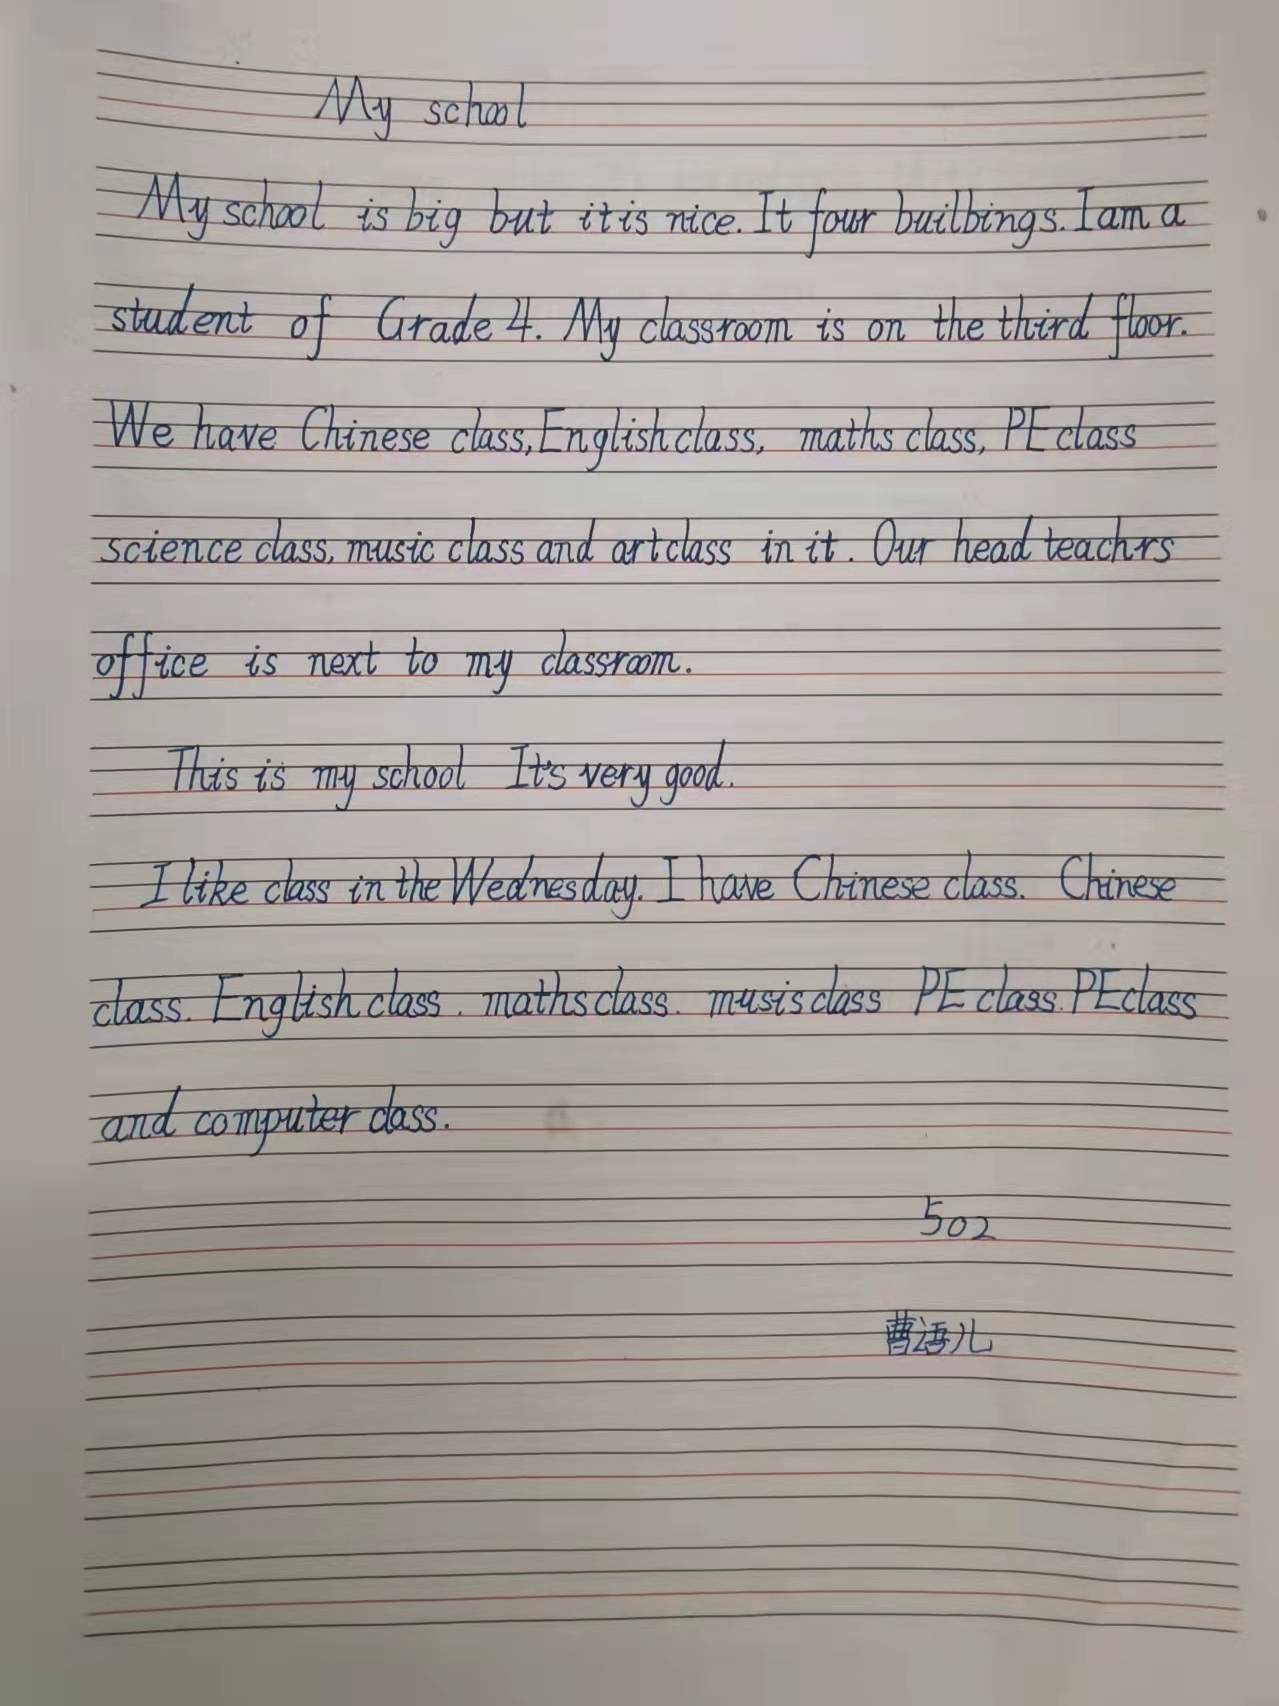 My school
My school is big but it is nice. It four builbings. I am a
student of Grade 4. My classroom is on the third floor.
We have Chinese class, English class, maths class, PE class
science class, music class and art class in it. Our head teachrs
office is next to my classroom.
This is my school It's very good.
I like class in the Wednesday. I have Chinese class. Chinese
class. English class. maths class. musis class PE class. PE class
and computer class.
502
曹语儿